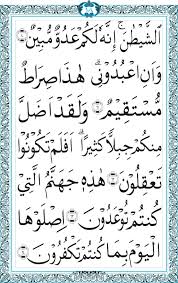 الشَّيْطٰنَ ۚ اِنَّهٗ لَكُمْ عَدُوٌّ مُّبِيْنٌ
وَّاَنِ اعْبُدُوْنِيْ ؔ هٰذَا صِرَاطٌ
مُّسْتَقِيْمٌ وَلَقَدْ اَضَلَّ
مِنْكُمْ جِبِلًّا كَثِيْرًا ؕ اَفَلَمْ تَكُوْنُوْا
تَعْقِلُوْنَ هٰذِهٖ جَهَنَّمُ الَّتِيْ
كُنْتُمْ تُوْعَدُوْنَ اِصْلَوْهَا
الْيَوْمَ بِمَا كُنْتُمْ تَكْفُرُوْنَ